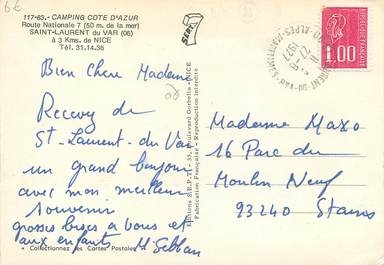 6€
117-63. - CAMPING COTE D'AZUR
Route Nationale 7 (50 m. de la mer)
SAINT-LAURENT du VAR (06)
à 3 Kms. de NICE
Tél. 31.14.36
S.E.P.T.
Bien Chère Madame
Recevez de
St-Laurent-du Var
un grand bonjour
avec mon meilleur
souvenir
grosses bises à vous et
aux enfants
« Collectionnez les Cartes Postales »
Editions S.E.P.T. - 35, Boulevard Gorbella - NICE
Fabrication Française - Reproduction interdite
1977
ALPES-MARITIMES
1,00
Madame Maxo
16 Parc du
Moulin Neuf
93240 Stains